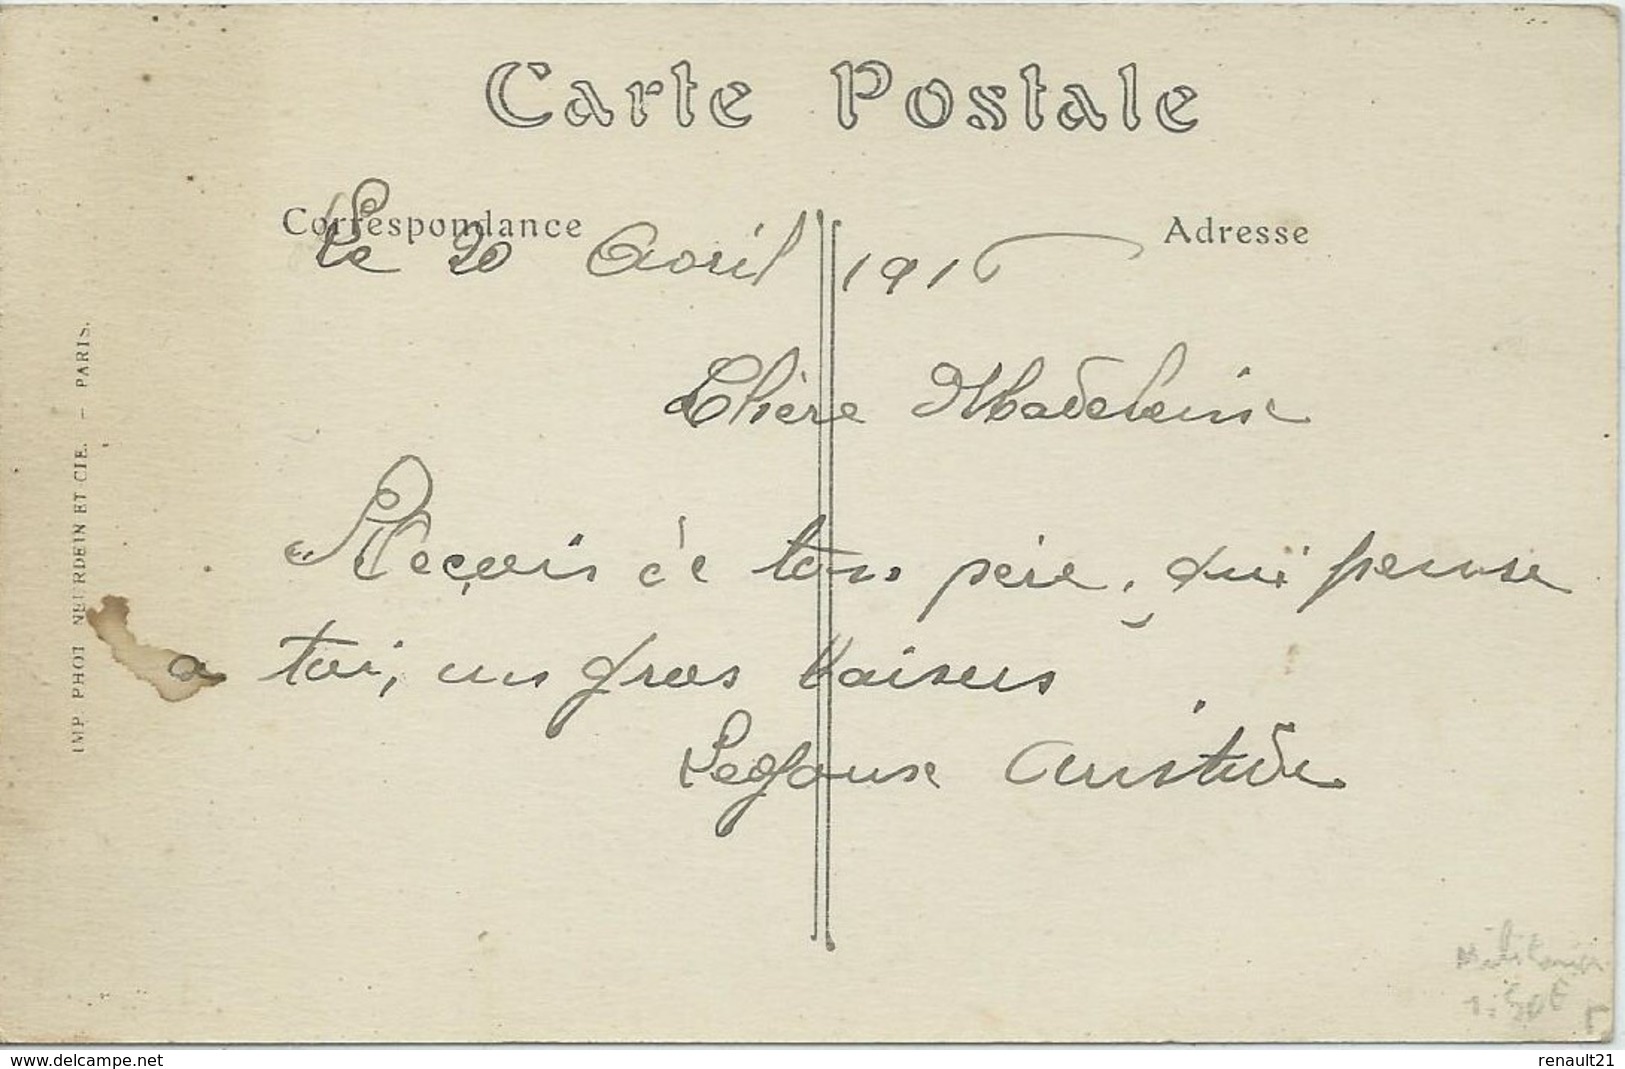 Carte Postale
Correspondance
Adresse
Le 20 Avril 1916
Chère Madeleine
Reçois ce ton père, qui pensse
a toi, un gros baisers
Aristide
IMP. PHOT. NEURDEIN ET CIE. — PARIS.
Militaria
1.50€
www.delcampe.net
renault21